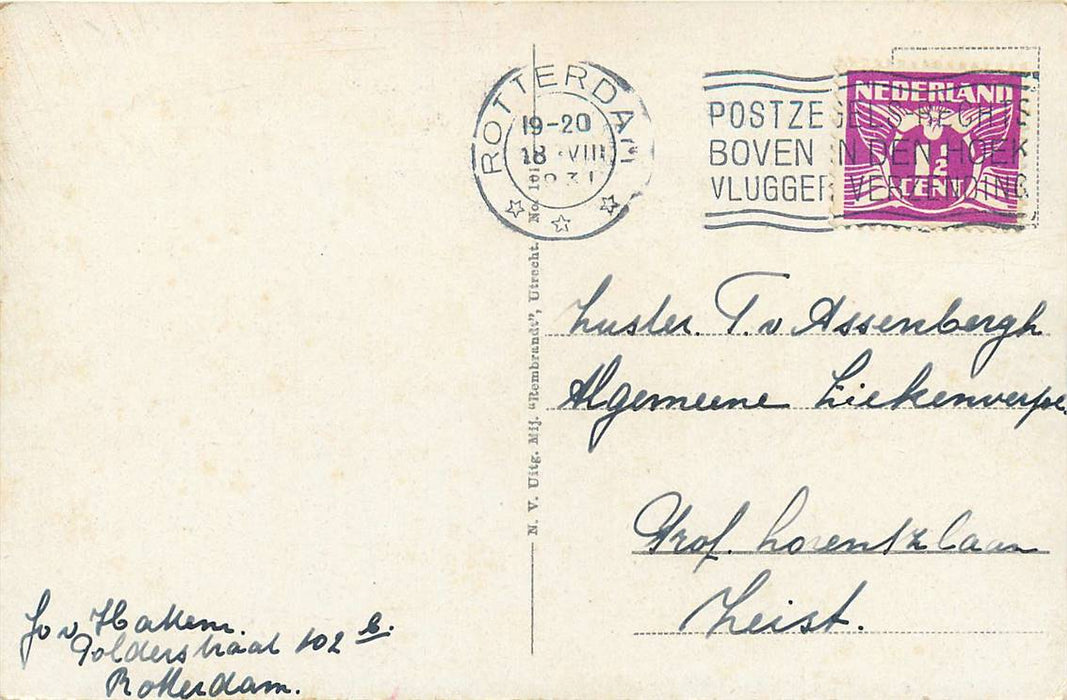 ROTTERDAM
19-20
18 VIII
1931
POSTZEGELS RECHTS
BOVEN IN DEN HOEK
VLUGGER VERZENDING
NEDERLAND
1½
CENT
N. V. Uitg. Mij. "Rembrandt", Utrecht. No.
Zuster. T. v Assenbergh
Algemeene Ziekenverple.
Prof. Lorentzlaan
Zeist.
Jo v. Hattem.
Polderstraat 102 b.
Rotterdam.